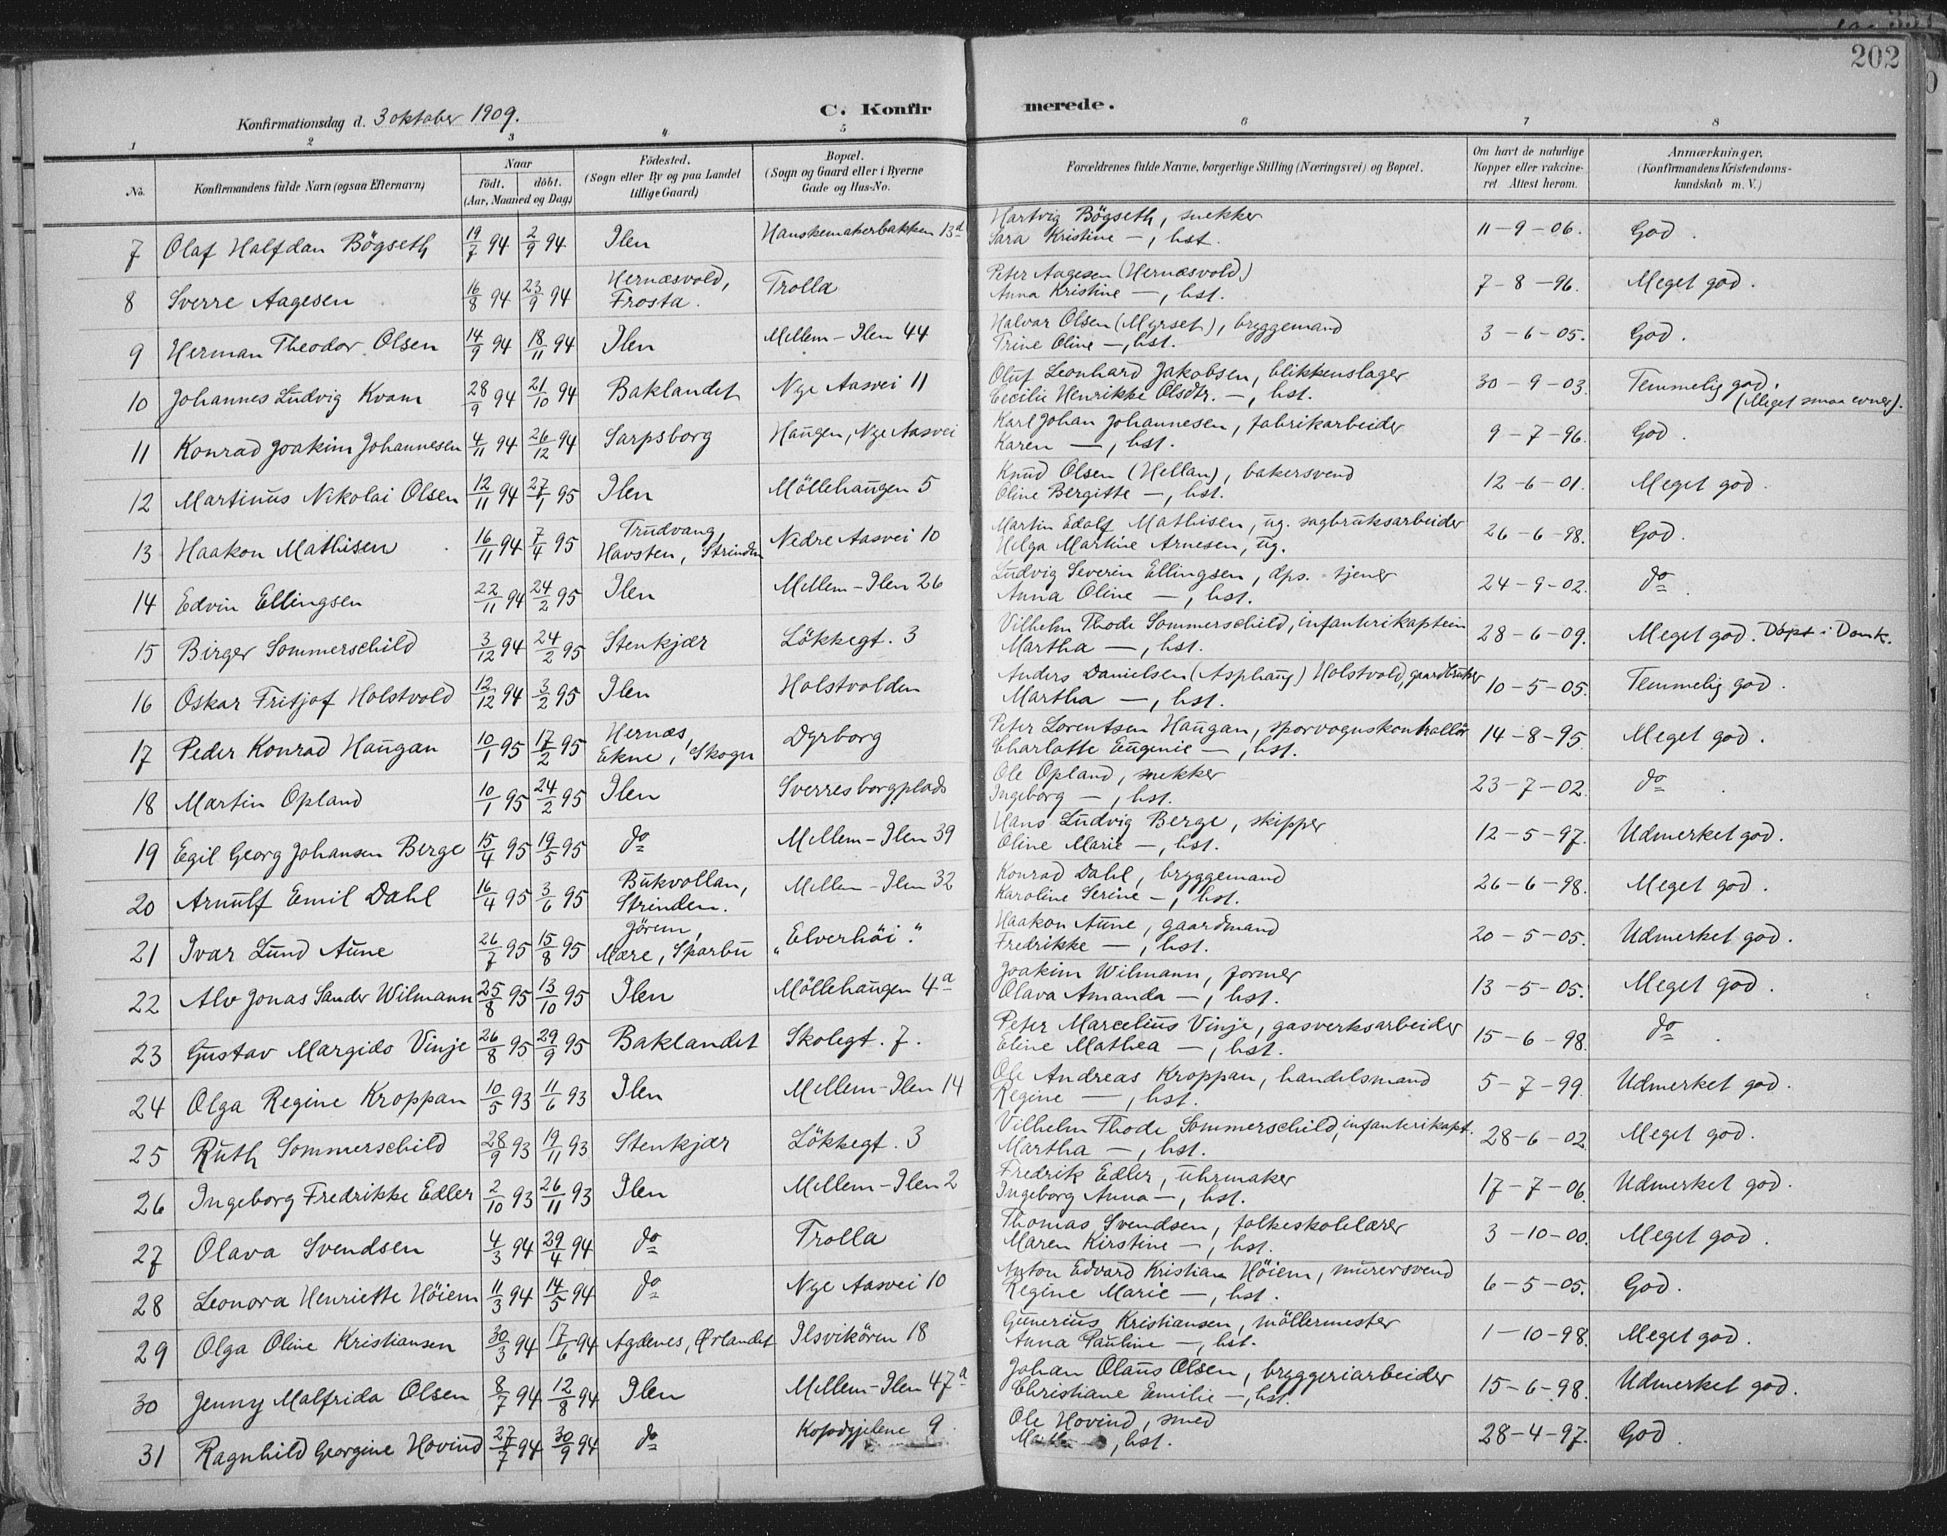 202
C. Konfirmerede.
Konfirmationsdag d. 3 oktober 1909.
1 2 3 4 5 6 7 8
No. Konfirmandens fulde Navn (ogsaa Efternavn) Naar født. døbt. (Aar, Maaned og Dag) Födested. (Sogn eller By og paa Landet tillige Gaard) Bopæl. (Sogn og Gaard eller i Byerne Gade og Hus-No. Forældrenes fulde Navne, borgerlige Stilling (Næringsvei) og Bopæl. Om havt de naturlige Kopper eller vakcineret. Attest herom. Anmærkninger, (Konfirmandens Kristendomskundskab m. V.)
7 Olaf Halfdan Bögseth 19/7 94 2/9 94 Ilen Hanskemakerbakken 13d Hartvig Bögseth, snekker 11-9-06. God.
Sara Kristine —, hst.
8 Sverre Aagesen 16/8 94 23/9 94 Hernæsvold, Frosta. Trolla Peter Aagesen (Hernæsvold) 7-8-96. Meget god.
Anna Kristine —, hst.
9 Herman Theodor Olsen 14/9 94 18/11 94 Ilen Mellem-Ilen 44 Halvar Olsen (Myrset), bryggemand 3-6-05. God.
Trine Oline —, hst.
10 Johannes Ludvig Kvam 28/9 94 21/10 94 Baklandet Nye Aasvei 11 Oluf Leonhard Jakobsen, blikkenslager 30-9-03. Temmelig god.
Cecilie Henrikke Olsdtr. —, hst. (Meget smaa evner).
11 Konrad Joakim Johannesen 4/11 94 26/12 94 Sarpsborg Haugen, Nye Aasvei Karl Johan Johannesen, fabrikarbeider 9-7-96. God.
Karen —, hst.
12 Martinus Nikolai Olsen 12/11 94 27/1 95 Ilen Möllehaugen 5 Knud Olsen (Hellan), bakersvend 12-6-01. Meget god.
Oline Bergitte —, hst.
13 Haakon Mathisen 16/11 94 7/4 95 Trudvang, Havsten, Strinden Nedre Aasvei 10 Martin Edolf Mathisen, ug. sagbruksarbeider 26-6-98. God.
Helga Martine Arnesen, ug.
14 Edvin Ellingsen 22/11 94 24/2 95 Ilen Mellem-Ilen 26 Ludvig Severin Ellingsen, dps. tjener 24-9-02. do.
Anna Oline —, hst.
15 Birger Sommerschild 3/12 94 24/2 95 Stenkjær Lökkegt. 3 Vilhelm Thode Sommerschild, infanterikaptein 28-6-09. Meget god. Döpt i Domk.
Martha —, hst.
16 Oskar Fritjof Holstvold 12/12 94 3/2 95 Ilen Holstvolden Anders Danielsen (Asphaug) Holstvold, gaardbruker 10-5-05. Temmelig god.
Martha —, hst.
17 Peder Konrad Haugan 10/1 95 17/2 95 Hernæs, Ekne, Skogn Dyrborg Peter Lorentsen Haugan, sporvognskontrollör 14-8-95. Meget god.
Charlotte Eugenie —, hst.
18 Martin Opland 10/1 95 24/2 95 Ilen Sverresborgplads Ole Opland, snekker 23-7-02. do.
Ingeborg —, hst.
19 Egil Georg Johansen Berge 15/4 95 19/5 95 do Mellem-Ilen 39 Hans Ludvig Berge, skipper 12-5-97. Udmerket god.
Oline Marie —, hst.
20 Arnulf Emil Dahl 16/4 95 3/6 95 Bukvollan, Strinden. Mellem-Ilen 32 Konrad Dahl, bryggemand 26-6-98. Meget god.
Karoline Serine —, hst.
21 Ivar Lund Aune 26/7 95 15/8 95 Jörem, Mære, Sparbu "Elverhöi." Haakon Aune, gaardmand 20-5-05. Udmerket god.
Fredrikke —, hst.
22 Alv Jonas Sander Wilmann 25/8 95 13/10 95 Ilen Möllehaugen 4a Joakim Wilmann, former 13-5-05. Meget god.
Olava Amanda —, hst.
23 Gustav Margids Vinje 26/8 95 29/9 95 Baklandet Skolegt. 7. Peter Marcelius Vinje, gasverksarbeider 15-6-98. do.
Eline Mathea —, hst.
24 Olga Regine Kroppan 10/5 93 11/6 93 Ilen Mellem-Ilen 14 Ole Andreas Kroppan, handelsmand 5-7-99. Udmerket god.
Regine —, hst.
25 Ruth Sommerschild 28/9 93 19/11 93 Stenkjær Lökkegt. 3 Vilhelm Thode Sommerschild, infanterikapt. 28-6-02 Meget god.
Martha —, hst.
26 Ingeborg Fredrikke Edler 2/10 93 26/11 93 Ilen Mellem-Ilen 2 Fredrik Edler, uhrmaker 17-7-06. Udmerket god.
Ingeborg Anna —, hst.
27 Olava Svendsen 4/3 94 29/4 94 do Trolla Thomas Svendsen, folkeskolelærer 3-10-00. Meget god.
Maren Kirstine —, hst.
28 Leonora Henriette Höiem 11/3 94 14/5 94 do Nye Aasvei 10 Anton Edvard Kristian Höiem, murersvend 6-5-05. God.
Regine Marie —, hst.
29 Olga Oline Kristiansen 30/3 94 17/6 94 Agdenes, Ørlandet Ilsvikören 18 Gunerius Kristiansen, möllermester 1-10-98. Meget god.
Anna Pauline —, hst.
30 Jenny Malfrida Olsen 8/7 94 12/8 94 Ilen Mellem-Ilen 47a Johan Olaus Olsen, bryggeriarbeider 15-6-98. Udmerket god.
Christiane Emilie —, hst.
31 Ragnhild Georgine Hovind 27/7 94 30/9 94 do 9 Ole Hovind, smed 28-4-97. God.
, hst.